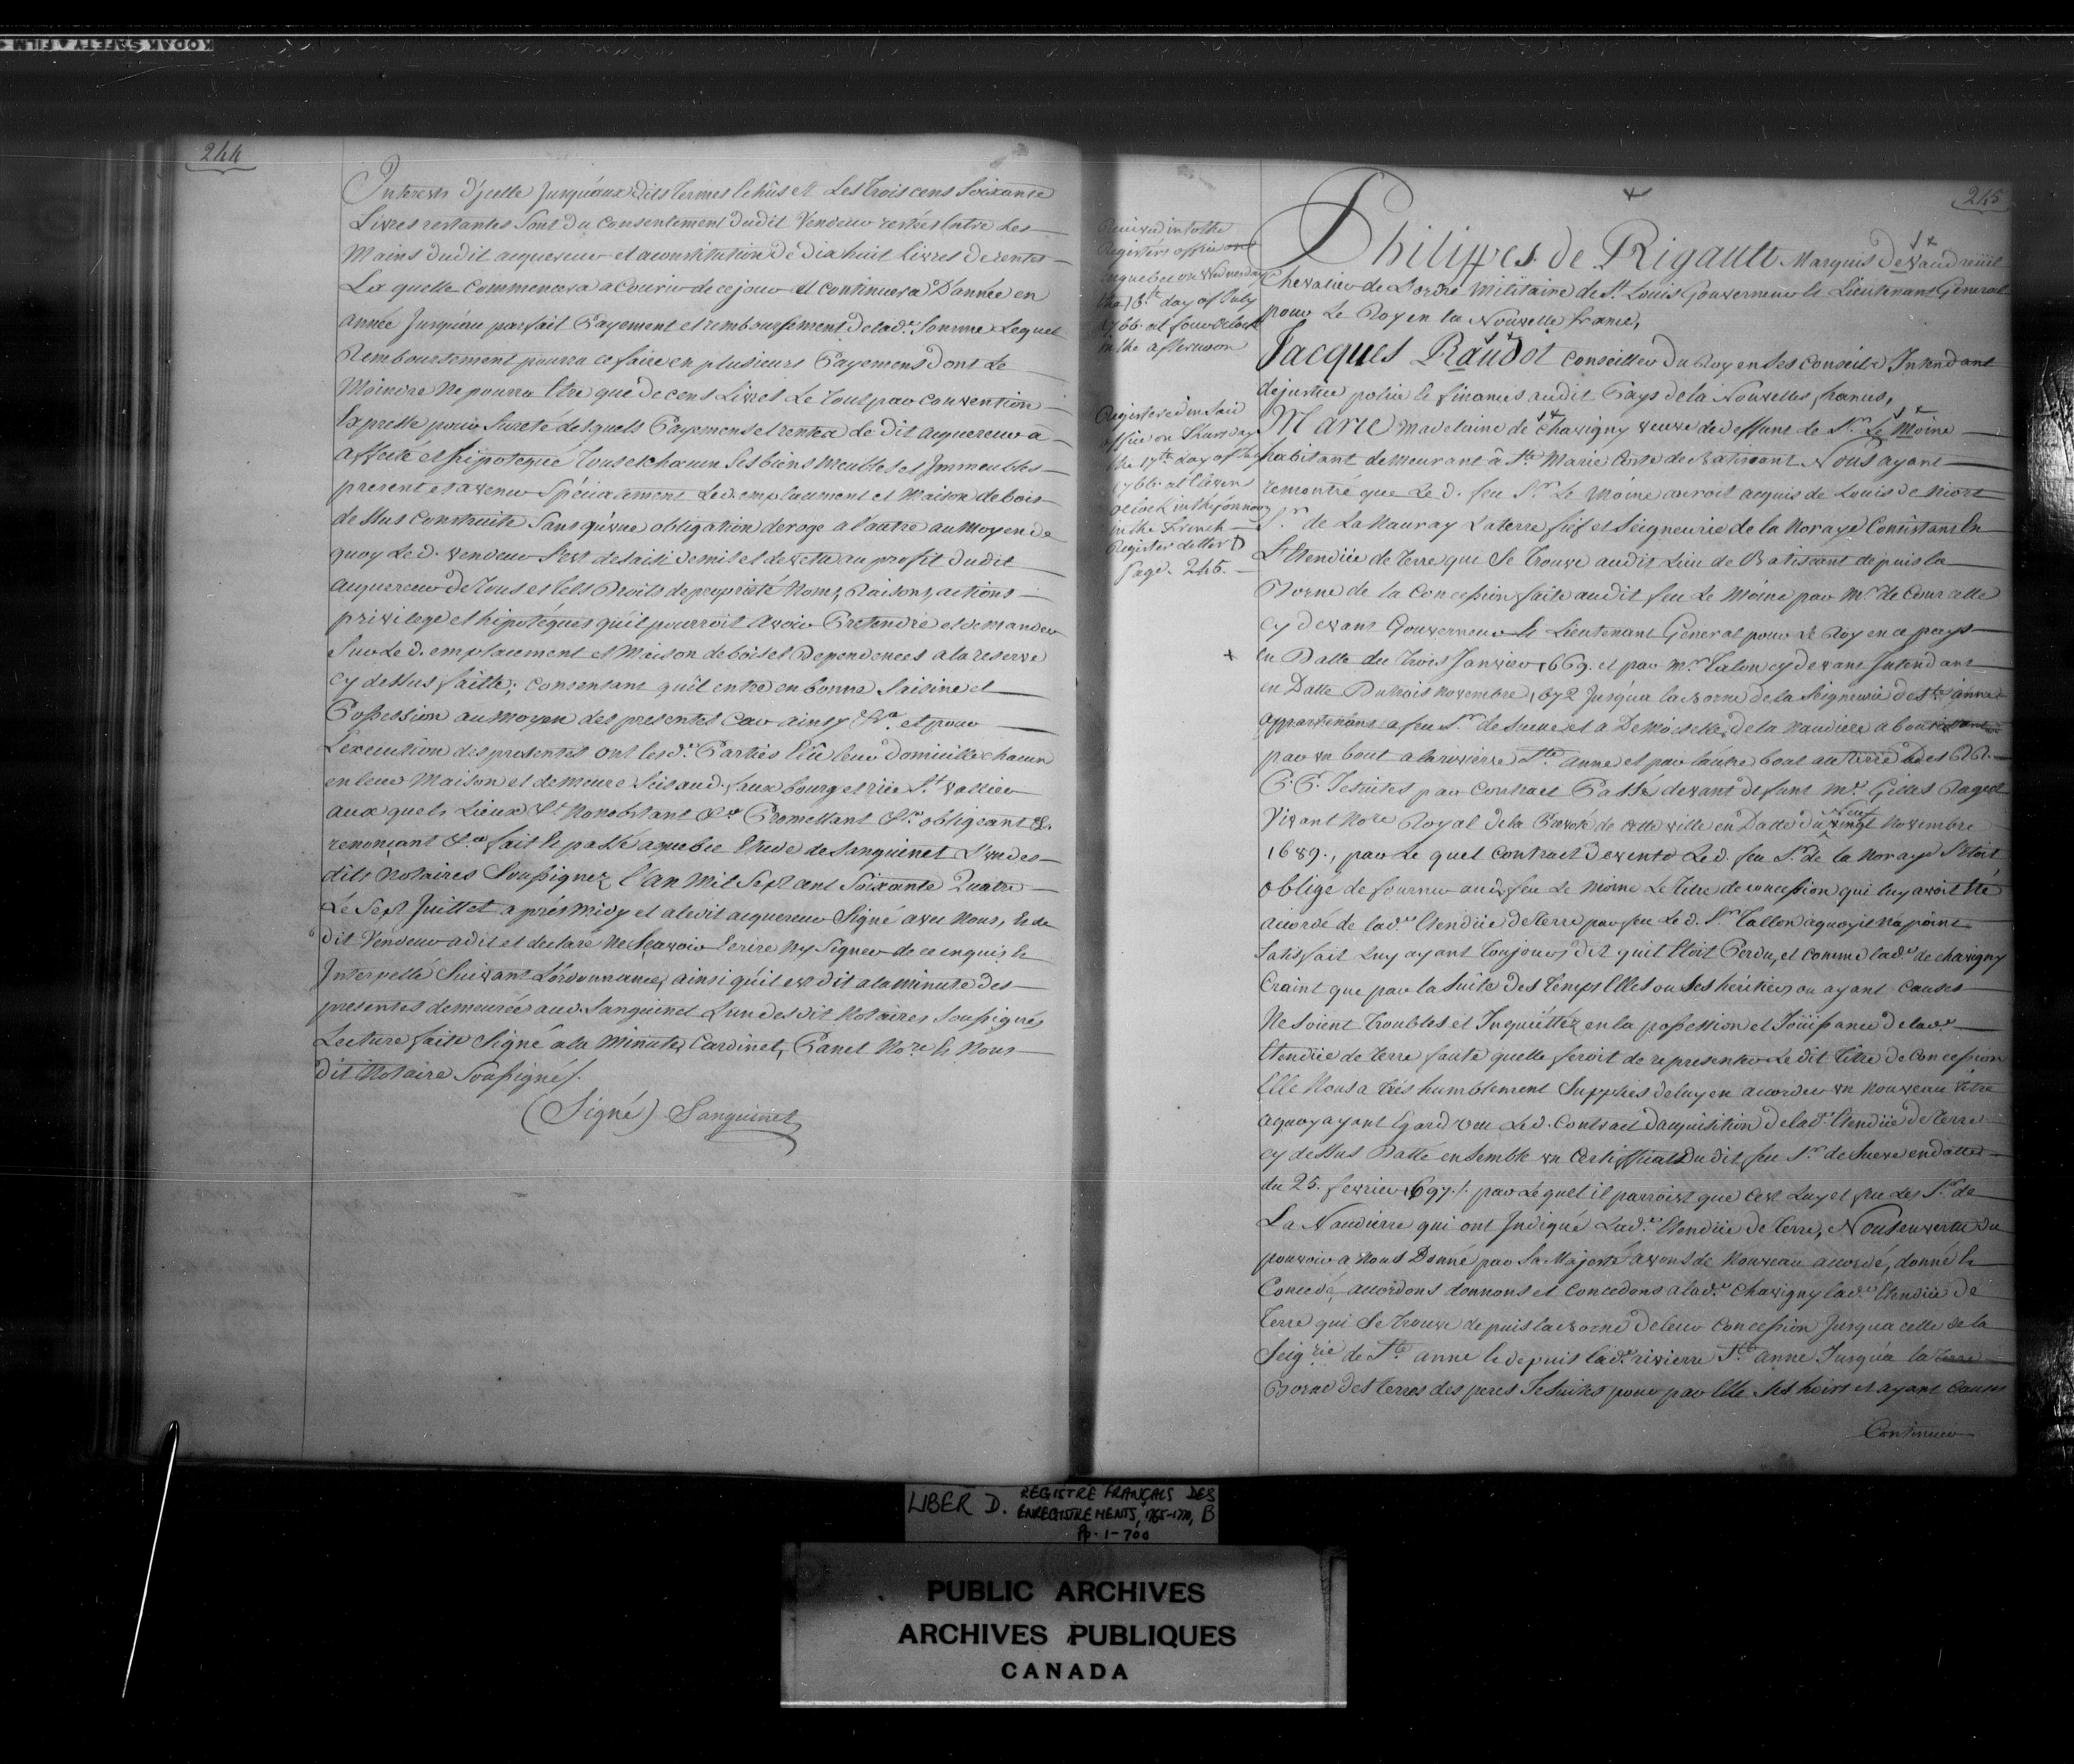 KODAK SAFETY FILM
244
Interests d'ycelle jusqu'aux dits termes échûs et Les trois cens Soixante
Livres restantes sont du consentement dudit Vendeur restées Entre Les
Mains dudit acquereur et a constitution de dix huit livres de rentes
La quelle Commencera a Courir de ce jour et continuera D'année en
année jusqu'au parfait Payement et remboursement de lad.e Somme Lequel
Remboursement pourra ce faire en plusieurs Payemens dont Le
Moindre Ne pourra Etre que de cens Livres Le tout par convention
Expresse pour Sureté desquels Payemens et rentes Le dit acquereur a
affecté et hipotequé tous et chacun Ses biens Meubles et Immeubles
present et avenir Spécialement Led. emplacement et Maison de bois
dessus Construite Sans qu'une obligation deroge a l'autre au Moyen de
quoy Le d. vendeur s'est desaisi demis et devetu au profit dudit
acquereur de tous et tels Droits de proprieté Noms, Raisons, actions
privilege et hipotéques qu'il pourroit avoir Pretendre et demander
Sur Le d. emplacement et Maison de bois et Dependences a la reserve
cy dessus faitte; consentant qu'il entre en bonne Saisine et
Possession au Moyen des presentes Car ainsy &.a et pour
L'execution des presentes ont les d.es Parties Elû leur domicille chacun
en leur Maison et demeure Seis aud. faux bourg et rüe S.t vallier
aux quels Lieux &.a Nonobstant &.a Promettant &.a obligeant &.
renonçant &.a fait et passé a quebec Etude de Sanguinet L'un des
dits Notaires Soussignez l'an Mil Sept cent Soixante Quatre
Le Sept Juillet après Midy et a ledit acquereur Signé avec Nous, Et le
dit Vendeur a dit et declaré Ne Sçavoir Ecrire Ny Signer de ce enquis et
Interpellé Suivant L'ordonnance, ainsi qu'il est dit a la minute des
presentes demeurée aud. Sanguinet L'un desdit Notaires Soussignés
Lecture faite Signé a la Minute, Cardinet, Panet No.re Et Nous
dit Notaire Soussigné/.
(Signé) Sanguinet
245
Received into the
Registers office
a quebec on Wednesday
the 16.th day of July
1766. at four oClock
in the afternoon
Registered in Said
office on Thursday
the 17.th day of July
1766. at Eleven
oClock in the forenoon
in the French
Register Letter D
Page. 245.
Philippes de Rigault Marquis de Vaudreüil
Chevalier de L'ordre Militaire de S.t Louis Gouverneur Et Lieutenant General
pour Le Roy en la Nouvelle france,
Jacques Raudot Conseiller du Roy en Ses Conseils Intendant
de justice police Et finances audit Pays de la Nouvelles france,
Marie Madelaine de Chavigny veuve de deffunt de S.r Le Moine
habitant demeurant â S.te Marie Coste de Batiscant Nous ayant
remontré que Le d. feu S.r Le Moine auroit acquis de Louis de Niort
S.r de La Nauray La terre fief et Seigneurie de la Noraye Consistant En
L'Etendüe de terre qui Se trouve audit Lieu de Batiscant depuis la
Borne de la Concession faite audit feu Le Moine par M.r de Courcelle
cy devant Gouverneur Et Lieutenant General pour Le Roy en ce pays
en Datte du trois Janvier 1669. et par M.r Talon cy devant Intendant
en Datte Du trois Novembre 1672 Jusqu'a la borne de la Seigneurie de S.te anne
appartenant a feu S.r de Sueve et a Demoiselle de la Naudiere aboutissante
par un bout a la rivierre S.te anne et par l'autre bout au terre des RR.
P.P. Jesuites par Contract Passé devant defunt M.e Gilles Rageot
Vivant No.re Royal de la Prevote de cette ville en Datte du vingt Neuf Novembre
1689., par Le quel Contract de vente Le d. feu S.r de la Noraye S'etoit
obligé de fournir aud. feu Le Moine Le titre de concession qui luy avoit Eté
accordé de lad.e Etendüe de terre par feu Le d. S.r Tallon a quoy il n'a point
Satisfait Luy ayant toujours dit qu'il Etoit Perdu, et comme lad.e de chavigny
Craint que par la Suite des temps Elles ou Ses héritiers ou ayant causes
Ne Soient troubles et Inquiéttéz en la possession et Joüissance de lad.e
Etendüe de terre faute quelle feroit de representer Le dit titre de Concession
Elle Nous a trés humblement Supplies de luy en accorder un nouveau titre
a quoy ayant Egard vu Le d. Contract d'acquisition de lad.e Etendüe de terre
cy dessus Datté ensemble un Certifficat Du dit feu S.r de Sueve en datte
du 25. fevrier 1697./. par Le quel il parroist que C'est Luy et feu Les S.r de
La Naudierre qui ont Indiqué Lad.e Etendüe de terre, Nous en vertu du
pouvoir a nous Donné par Sa Majesté avons de Nouveau accordé, donné Et
Concedé, accordons donnons et Concedons a lad.e Chavigny lad.e Etendüe de
terre qui Se trouve depuis la borne de leur Concession Jusqua celle de la
Seig.rie de S.te anne Et depuis lad.e rivierre S.te anne Jusqu'a la terre
Borne des terres des peres Jesuites pour par Elle Ses hoirs et ayant causes
Continuer
LIBER D. REGISTRE FRANÇAIS DES
ENREGISTREMENTS, 1765-1770, B
Pp. 1-700
PUBLIC ARCHIVES
ARCHIVES PUBLIQUES
CANADA